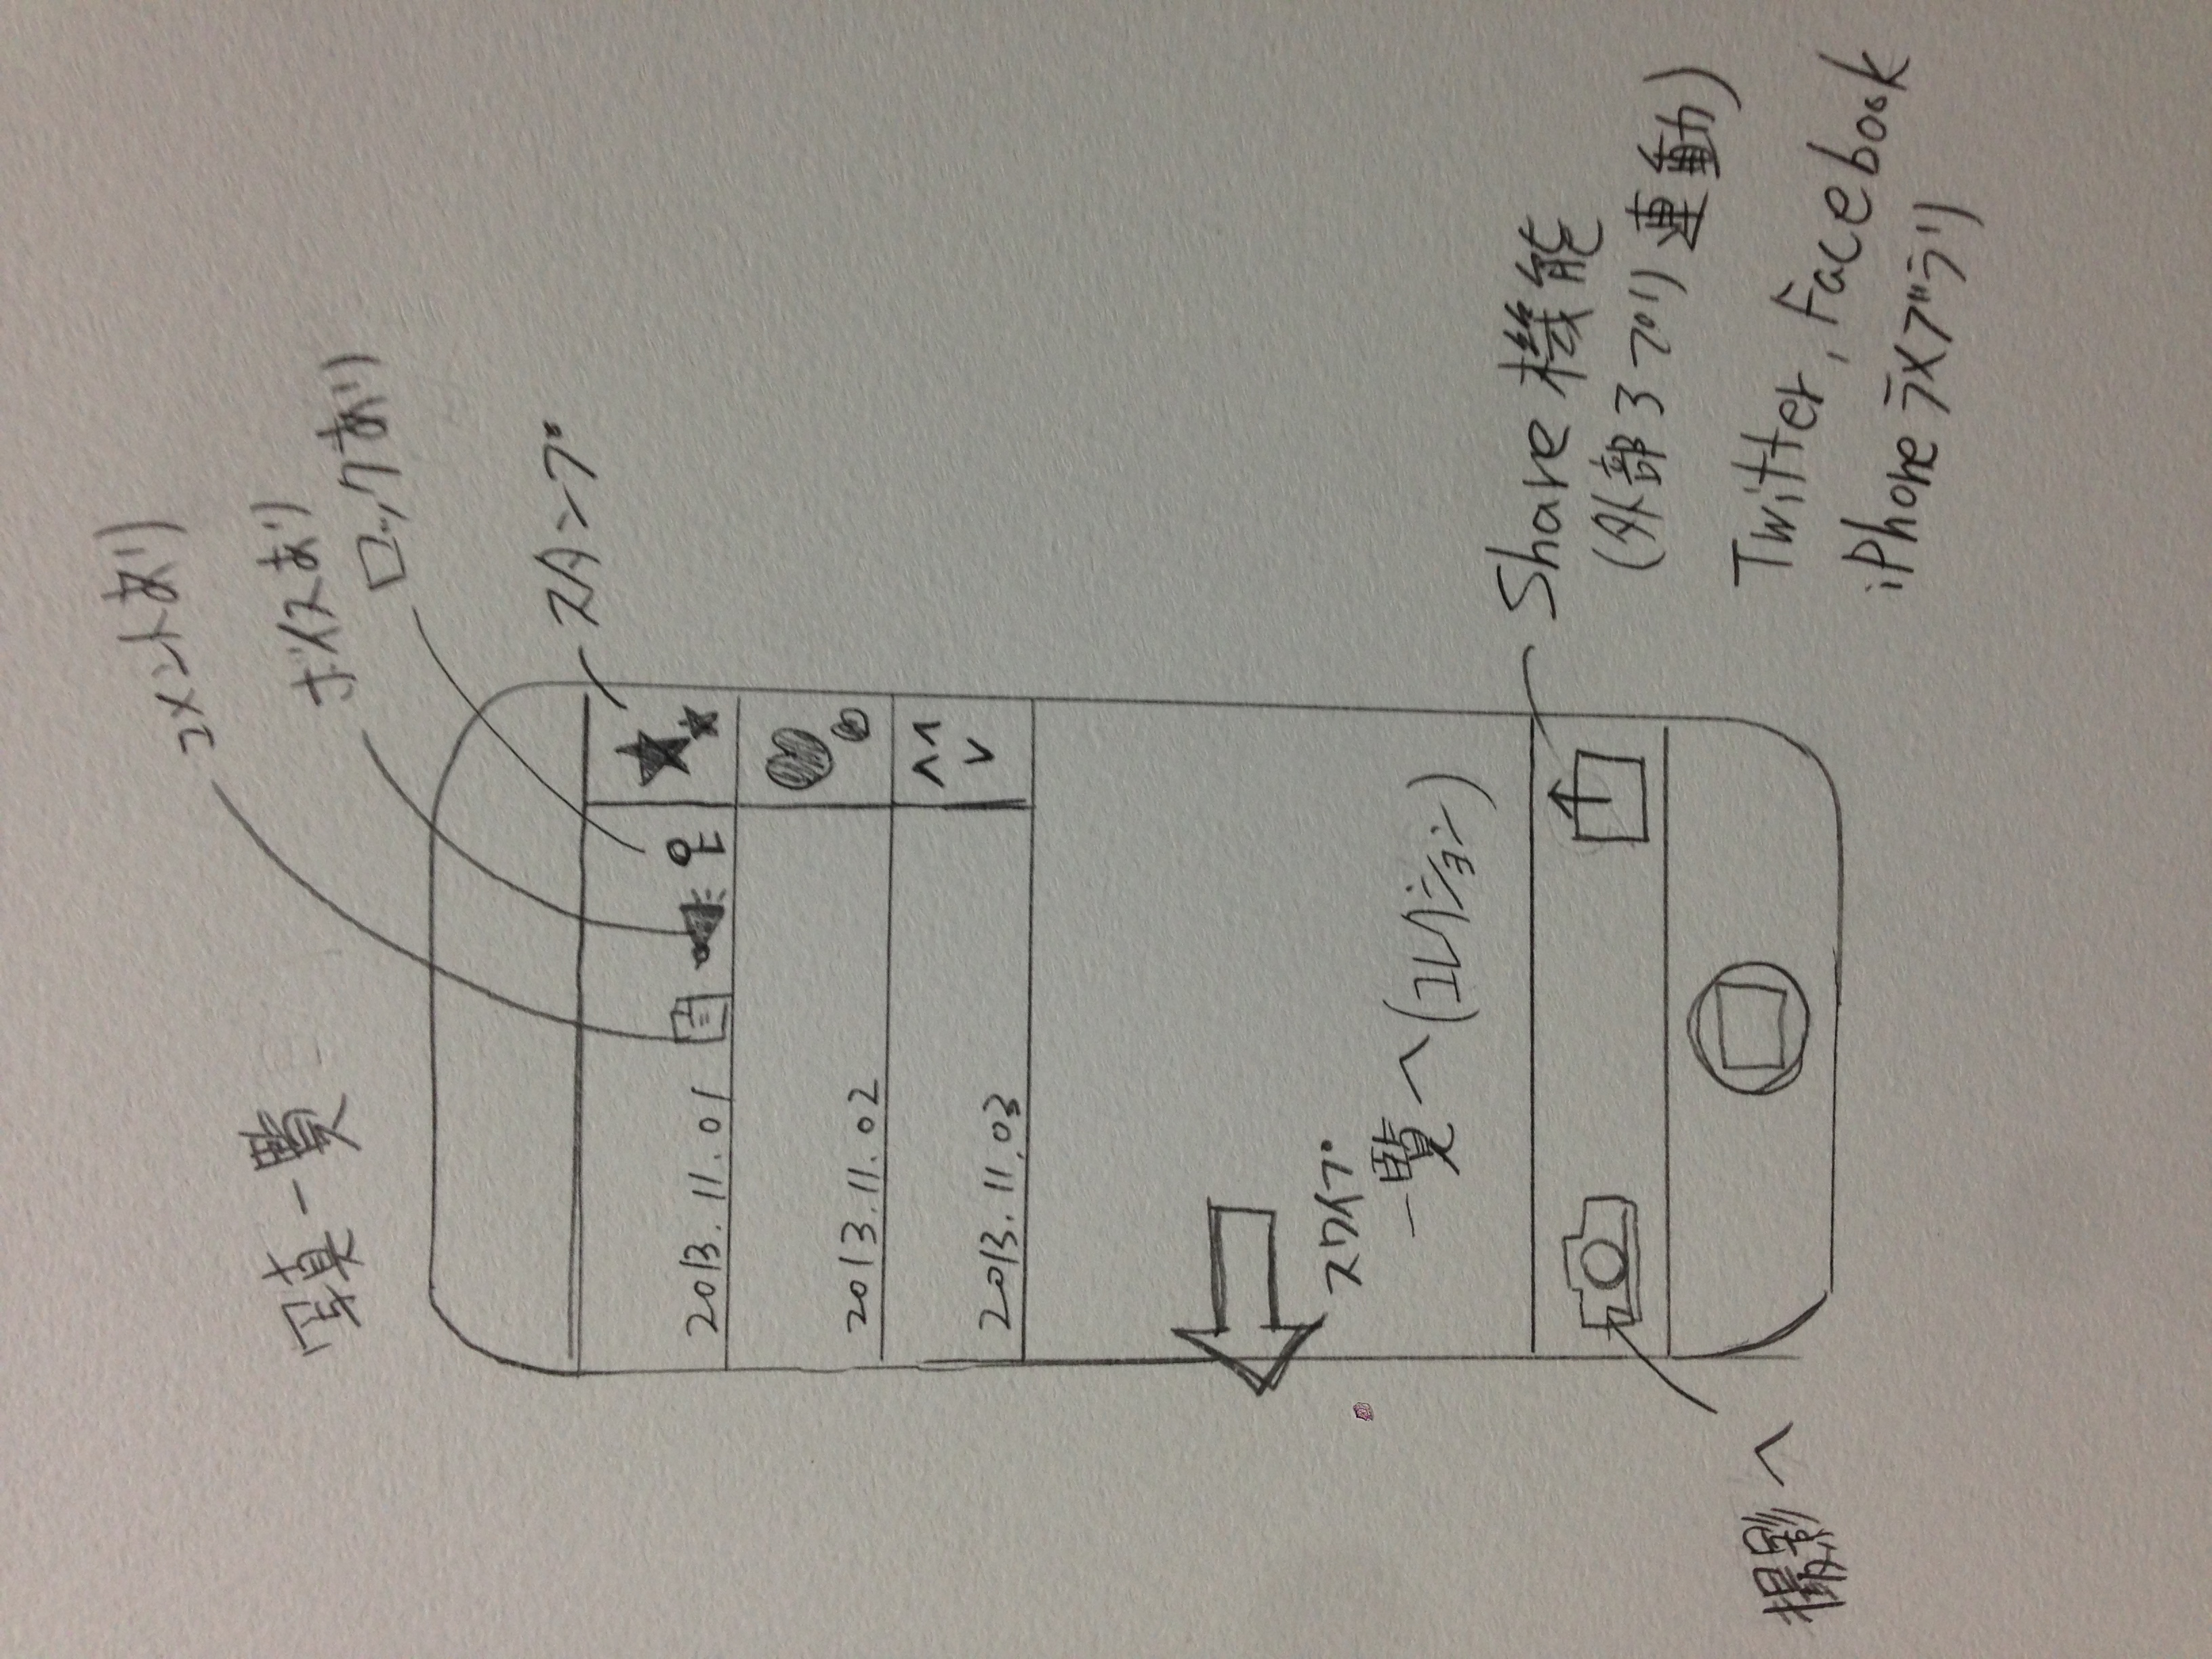 写真一覧
コメントあり
ボイスあり
ロックあり
スタンプ
2013.11.01
2013.11.02
2013.11.03
スワイプ
一覧へ(コレクション)
Share機能
(外部アプリ連動)
Twitter, Facebook
iPhoneライブラリ
撮影へ